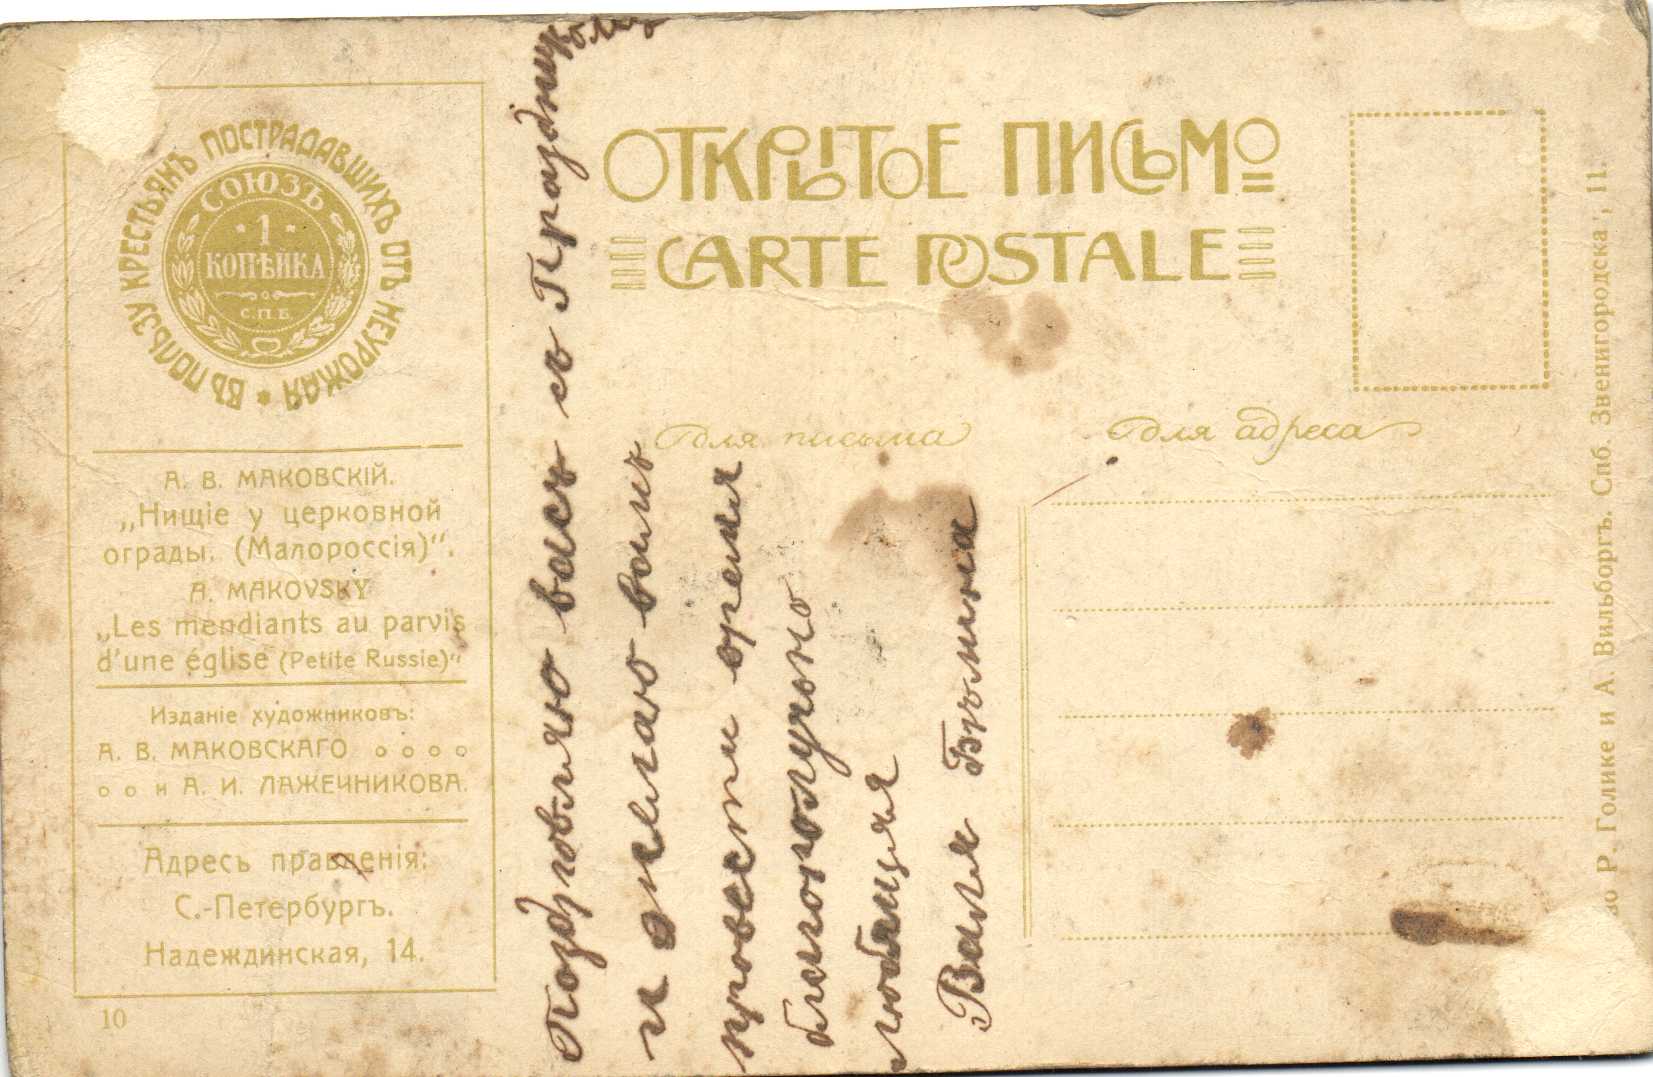 ВЪ ПОЛЬЗУ КРЕСТЬЯНЪ ПОСТРАДАВШИХЪ ОТЪ НЕУРОЖАЯ
СОЮЗЪ
1
КОПѢЙКА
С.П.Б.
А. В. МАКОВСКІЙ.
„Нищіе у церковной
ограды. (Малороссія)“.
A. MAKOVSKY
„Les mendiants au parvis
d'une église (Petite Russie)“
Изданіе художниковъ:
А. В. МАКОВСКАГО
и А. И. ЛАЖЕЧНИКОВА.
Адресъ правленія:
С.-Петербургъ.
Надеждинская, 14.
10
ОТКРЫТОЕ ПИСЬМО
CARTE POSTALE
Для письма
Для адреса
Поздровляю васъ съ Праздникомъ
и желаю вамъ
провести время
благополучно
любящая
Валя
Р. Голике и А. Вильборгъ. Спб. Звенигородская, 11.